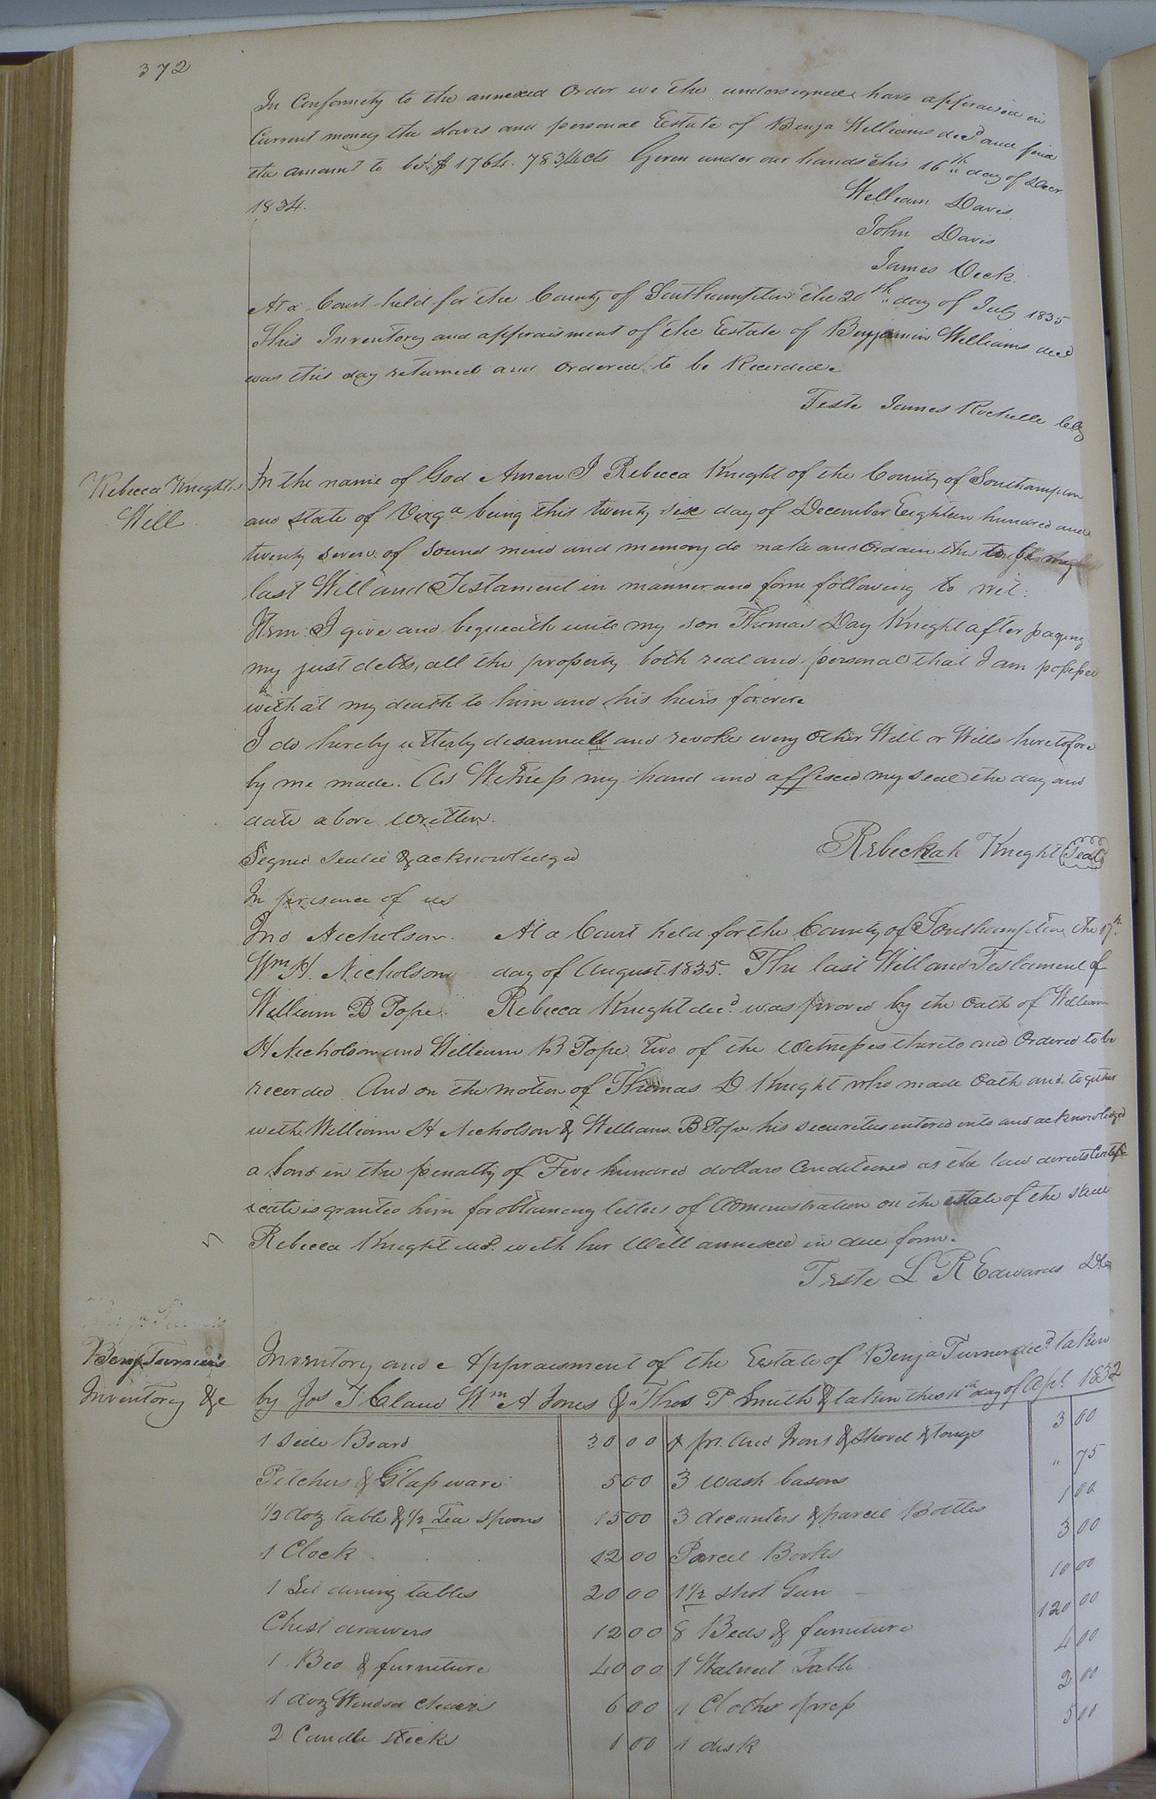 372
In Conformity to the annexed Order we the undersigned have appraised in
Current money the slaves and personal Estate of Benja Williams decd and find
the amount to be $1764. 78 3/4cts Given under our hands this 16th day of Decr
1834.
William Davis
John Davis
James
At a Court held for the County of Southampton the 20th day of July 1835
This Inventory and appraisment of the Estate of Benjamin Williams decd
was this day returned and ordered to be Recorded.
Teste James Rochelle Clk
Rebecca Knights
Will
In the name of God Amen I Rebecca Knight of the County of Southampton
and State of Virga being this twenty six day of December Eighteen hundred and
twenty seven of sound mind and memory do make and ordain this to be my
last Will and Testament in manner and form following to wit:
Item: I give and bequeath unto my son Thomas Day Knight after paying
my just debts, all the property both real and personal that I am possessed
with at my death to him and his heirs forever.
I do hereby utterly disannull and revoke every other Will or Wills heretofore
by me made. As Witness my hand and affixed my seal the day and
date above written.
Signed sealed & acknowledged
Rebeckah Knight (Seal)
In presence of us
Jno Nicholson
Wm H. Nicholson
William B Pope
At a Court held for the County of Southampton the 17th
day of August 1835. The last Will and Testament of
Rebecca Knight decd. was proved by the oath of William
H Nicholson and William B Pope two of the witnesses thereto and Ordered to be
recorded And on the motion of Thomas D Knight who made oath and together
with William H Nicholson & William B Pope his securities entered into and acknowledged
a bond in the penalty of Five hundred dollars Conditioned as the law directs Certifi
cate is granted him for obtaining letters of Administration on the estate of the said
Rebecca Knight decd. with her Will annexed in due form.
Teste L R Edwards
Benja Turner's
Inventory &c
Inventory and Appraisment of the Estate of Benja Turner decd. taken
by Jos T Claud Wm A Jones & Thos P. Smith & taken this 11th day of Apl. 1832
1 Side Board 30 00
1 pr. And Irons & Shovel & tongs 3 00
Pitchers & Glass ware 5 00
3 wash basons " 75
1/2 doz table & 1/2 Tea Spoons 15 00
3 decanters & parcel Bottles 1 00
1 Clock 12 00
Parcel Books 3 00
1 Set dining tables 20 00
1 1/2 shot Gun 10 00
Chest drawers 12 00
8 Beds & furniture 120 00
1 Bed & furniture 40 00
1 Walnut Table 4 00
1 doz Windsor chairs 6 00
1 Clothes press 2 00
2 Candle sticks 1 00
1 desk 5 00